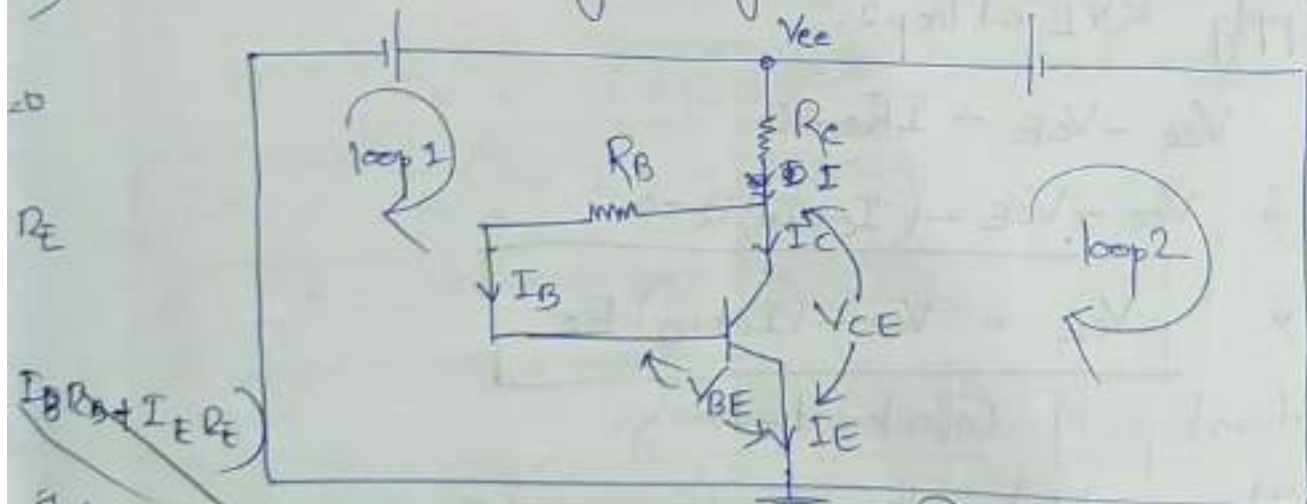 Vcc
=0
loop 1
RC
RB
I
RE
IC
loop 2
IB
VCE
VBE
IE
IBRB + IERE)